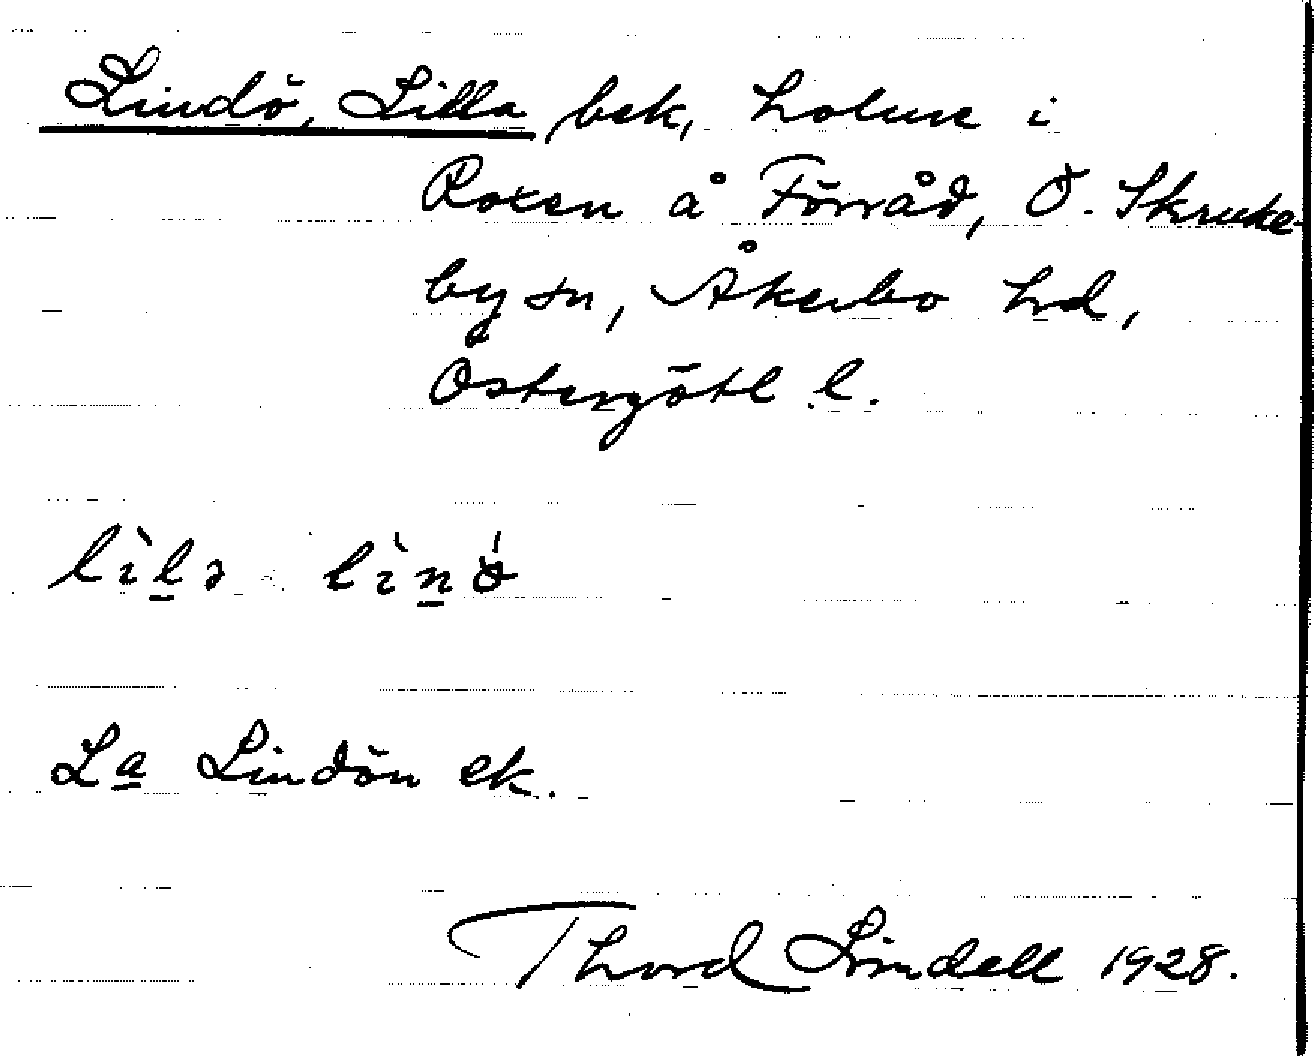 Lindö, Lilla bek, holme i
Roxen å Förråd, Ö. Skruke-
by sn, Åkerbo hd,
Östergötl l.
lìlа lìnö́
La Lindön ek.
Thord Lindell 1928.